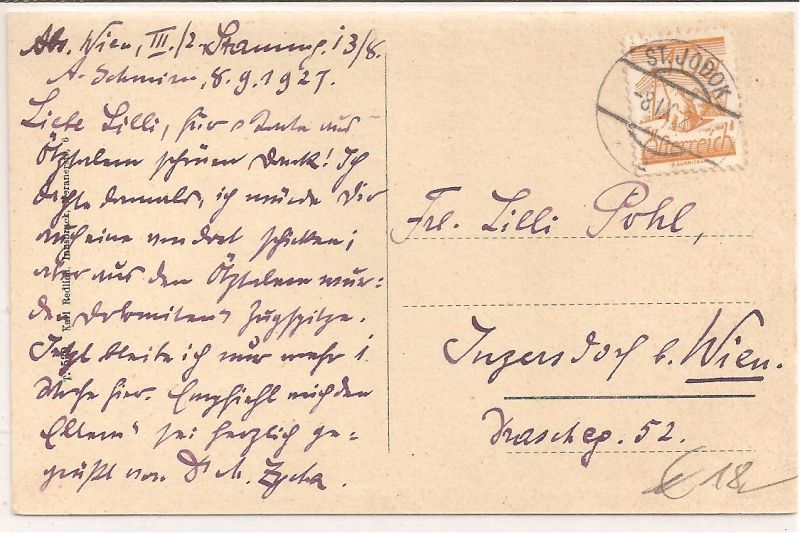 Abs. Wien, III./2 13/8.
A. Schmirn, 8.9.1927.
Liebe Lilli, für Karte aus
Ötztalern schönen Dank! Ich
dachte damals, ich würde Dir
auch eine von dort schicken;
aber aus den Ötztalern wur-
den Dolomiten Zugspitze.
Jetzt bleibe ich nur mehr 1
Woche hier. Empfiehl mich den
Eltern sei herzlich ge-
grüßt von
Karl Redlich, Innsbruck,
ST. JODOK
Österreich
Frl. Lilli Pohl,
Inzersdorf b. Wien.
Drascheg. 52.
18